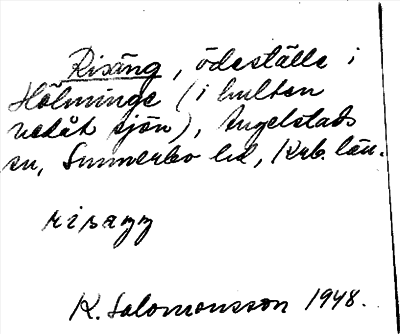 Risäng, ödeställe i
Hölminge (i hulten
nedåt sjön), Angelstads
sn, Sunnerbo hd, Krb. län.
risaŋŋ
K. Salomonsson 1948.